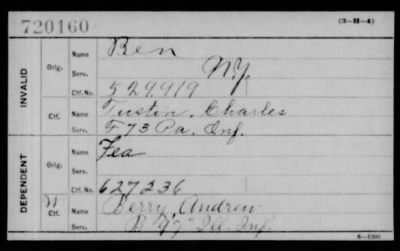 720160
(3-H-4)
INVALID
Orig.
Name Ben
Serv. N.Y.
Ctf. No. 529,919
Ctf.
Name Tustin, Charles
Serv. F 73 Pa. Inf.
DEPENDENT
Orig.
Name Fea
Serv.
Ctf. No. 627236
W
Ctf.
Name Derry, Andrew
Serv. Ill. Inf.